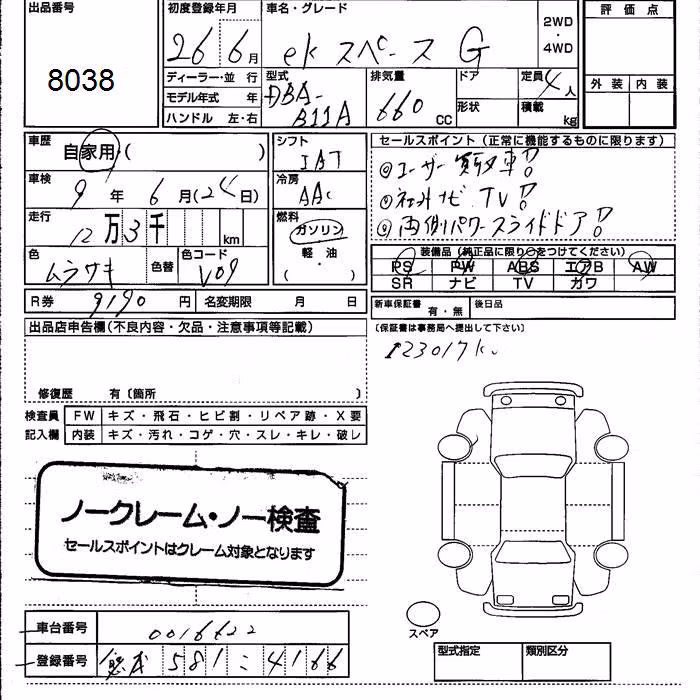 出品番号
8038
初度登録年月
26年6月
車名・グレード
ekスペース G
2WD
・
4WD
評価点
外装 内装
ディーラー・並行
モデル年式 年
ハンドル 左・右
型式
DBA-
B11A
排気量
660 cc
ドア
形状
定員 4人
積載 kg
車歴
自家用・( )
車検
9年6月(24日)
走行
12万3千 km
色
ムラサキ
色替
色コード
V09
シフト
IAT
冷房
AAC
燃料
ガソリン
軽・油
( )
セールスポイント(正常に機能するものに限ります)
◎ユーザー買取車!!
◎社外ナビ TV!!
◎両側パワースライドドア!!
装備品(純正品に限り○をつけてください)
PS PW ABS エアB AW
SR ナビ TV カワ
R券 9190円 名変期限 月 日
新車保証書 有・無 後日品
(保証書は事務局へ提出して下さい)
123017k
出品店申告欄(不良内容・欠品・注意事項等記載)
修復歴 有〔箇所 〕
検査員 FW キズ・飛石・ヒビ割・リペア跡・X要
記入欄 内装 キズ・汚れ・コゲ・穴・スレ・キレ・破レ
ノークレーム・ノー検査
セールスポイントはクレーム対象となります
スペア
車台番号 0016622
登録番号 熊本 581 に 4166
型式指定 類別区分